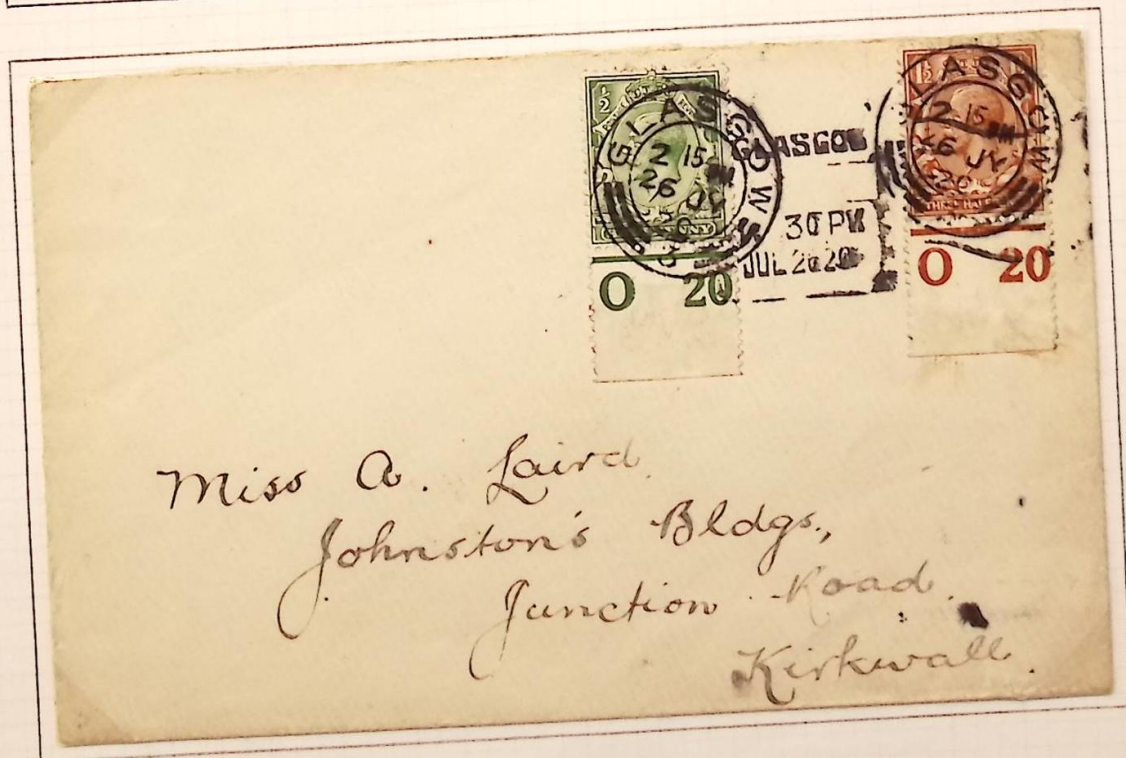 ½
1½
GLASGOW
2 15 PM
26 JY
20
3
GLASGOW
30 PM
JUL 26 20
GLASGOW
2 15 PM
26 JY
20
THREE HALF
O 20
O 20
Miss A. Laird.
Johnston's Bldgs.,
Junction Road.
Kirkwall.